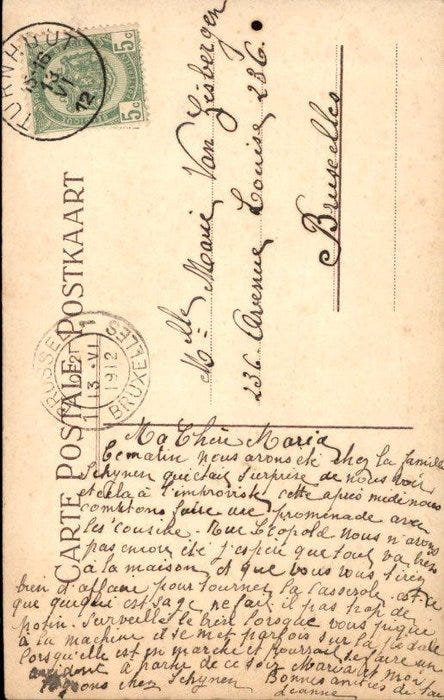 CARTE POSTALE POSTKAART
TURNHOUT
13 VI 12
5c 5c
BRUSSEL 1 BRUXELLES
13 VI 1912
Mlle Marie Van Gisbergen
236 Avenue Louise 236.
Bruxelles
Ma Chère Maria
Ce matin nous avons été chez la famille
Schynen qui était surprise de nous voir
et cela à l'improviste, cette après midi nous
comptons faire une promenade avec
les cousines. Rue Léopold nous n'avons
pas encore été j'espère que tout va bien
à la maison et que vous vous tirez
bien d'affaire pour tourner la casserole est ce
que est sage ne fait il pas trop de
potin. Surveille le bien lorsque vous piquez
à la machine il se met parfois sur la pédale
lorsqu'elle est en marche et pourrait se faire un
accident à partir de ce soir Maria et moi
chez Schynen Bonnes amitiés de
Jeanne